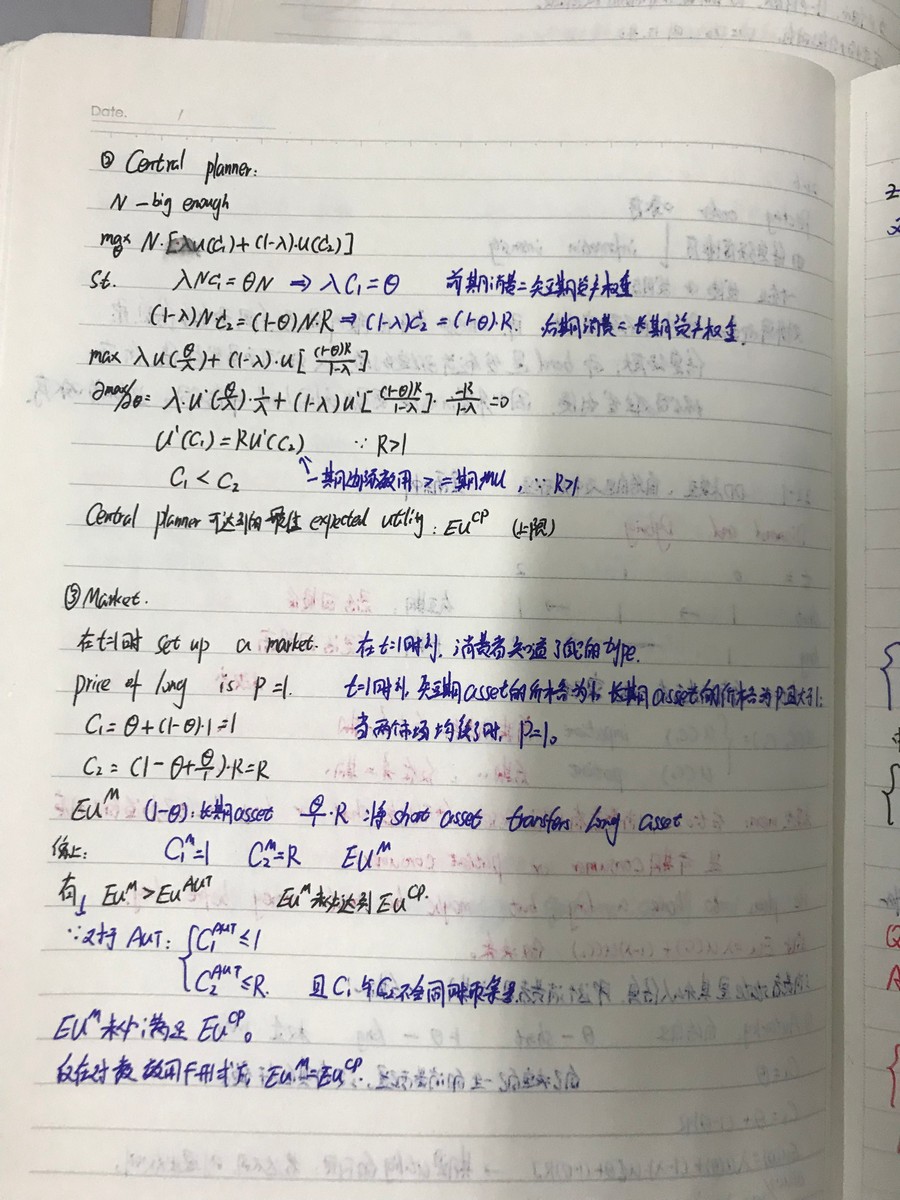 Date. /
② Central planner:
N — big enough
max_θ N·[λu(c₁)+(1-λ)·u(c₂)]
st. λNc₁=θN ⇒ λC₁=θ 前期消费=短期资产权重
(1-λ)Nc₂=(1-θ)N·R ⇒ (1-λ)c₂=(1-θ)·R. 后期消费=长期资产权重.
max λu(θ/λ)+(1-λ)·u[(1-θ)R/1-λ]
∂max/∂θ= λ·u'(θ/λ)·1/λ+(1-λ)u'[(1-θ)R/1-λ]·-R/1-λ=0
U'(C₁)=RU'(C₂) ∵ R>1
C₁<C₂ ↖一期边际效用>二期MU, ∵R>1
Central planner 可达到的最佳 expected utility: EU^CP (上限)
③ Market.
在t=1时 set up a market. 在t=1时刻, 消费者知道了自己的type.
price of long is P=1. t=1时刻, 短期asset的价格为1, 长期asset的价格为P且大于1.
C₁=θ+(1-θ)·1=1 当两个市场均衡时, P=1。
C₂=(1-θ+θ/P)·R=R
EU^M (1-θ):长期asset θ/P·R:将short asset transfers long asset
综上: C₁^M=1 C₂^M=R EU^M
有 EU^M>EU^AUT EU^M未必达到EU^CP.
∵对于AUT: { C₁^AUT≤1
C₂^AUT≤R. 且C₁与C₂不会同时取等号.
EU^M未必满足EU^CP。
仅在对数效用F形式下, EU^M=EU^CP.